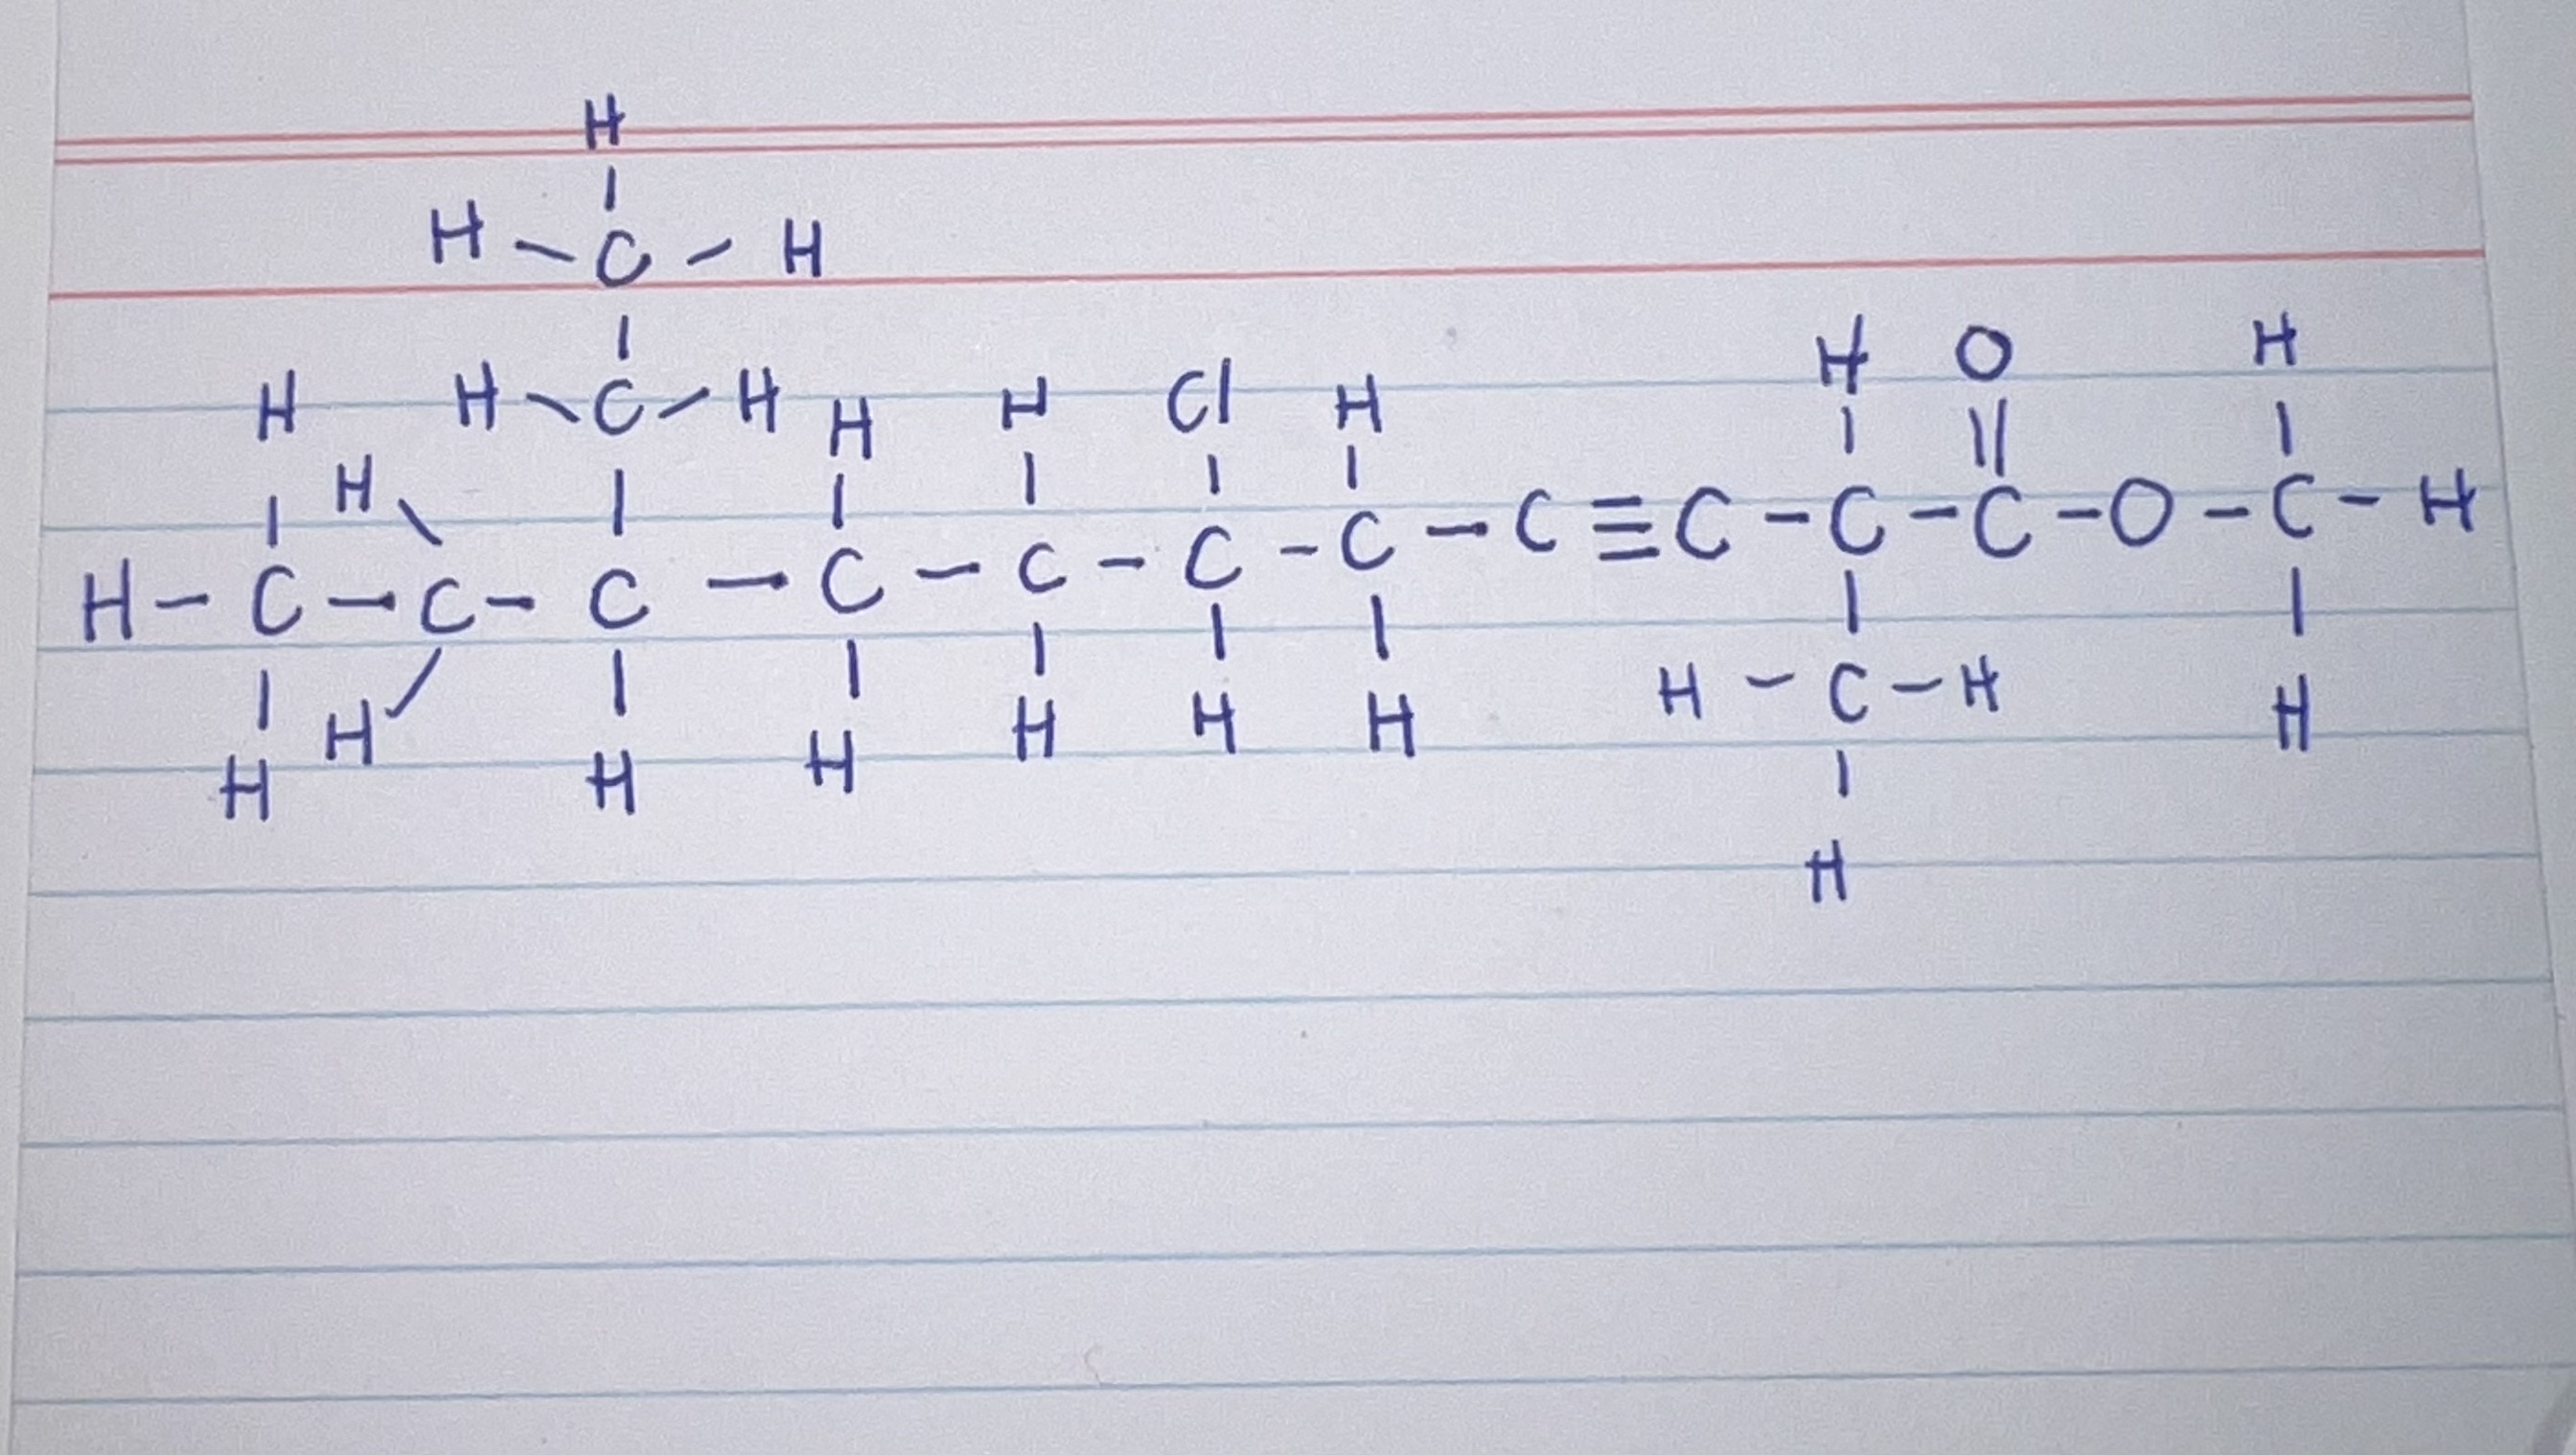 H
H C H
H H C H H H Cl H H O H
H C ≡ C - C - C - O - C - H
H - C - C - C - C - C - C - C -
H - C - H
H H H H H H H H
H